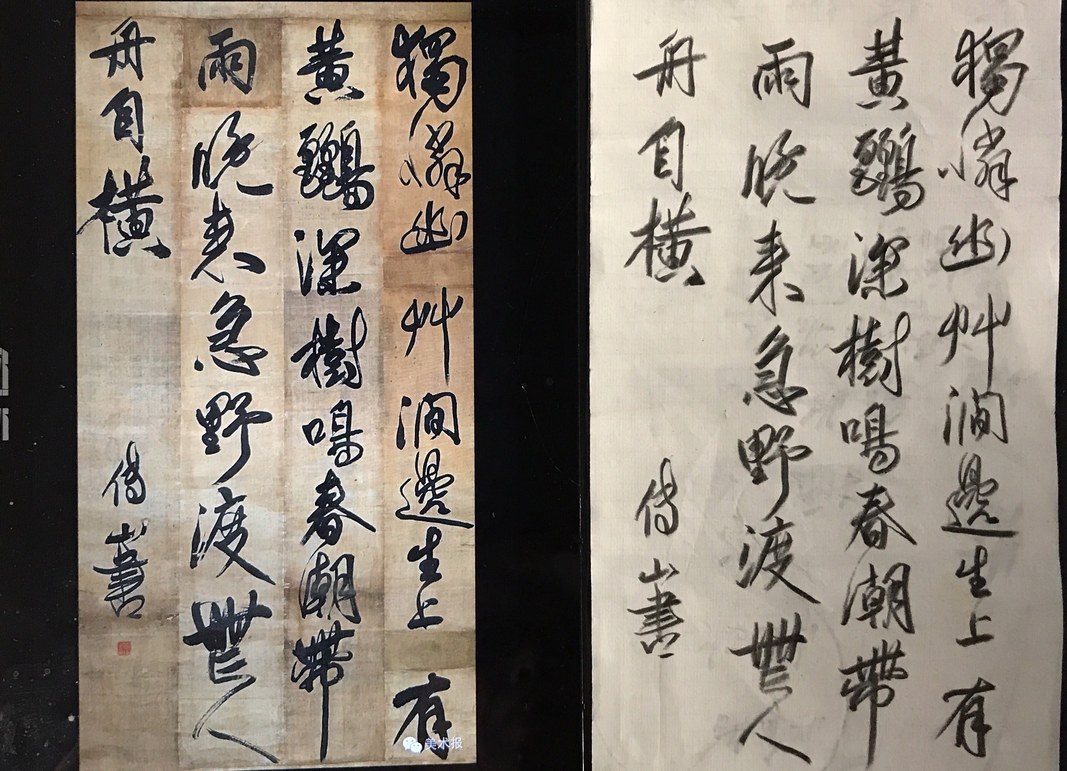 獨憐幽艸澗邊生上有
黃鸝深樹鳴春潮帶
雨晚来急野渡無人
舟自橫
傅山書
美术报
獨憐幽艸澗邊生上有
黃鸝深樹鳴春潮帶
雨晚来急野渡無人
舟自橫
傅山書